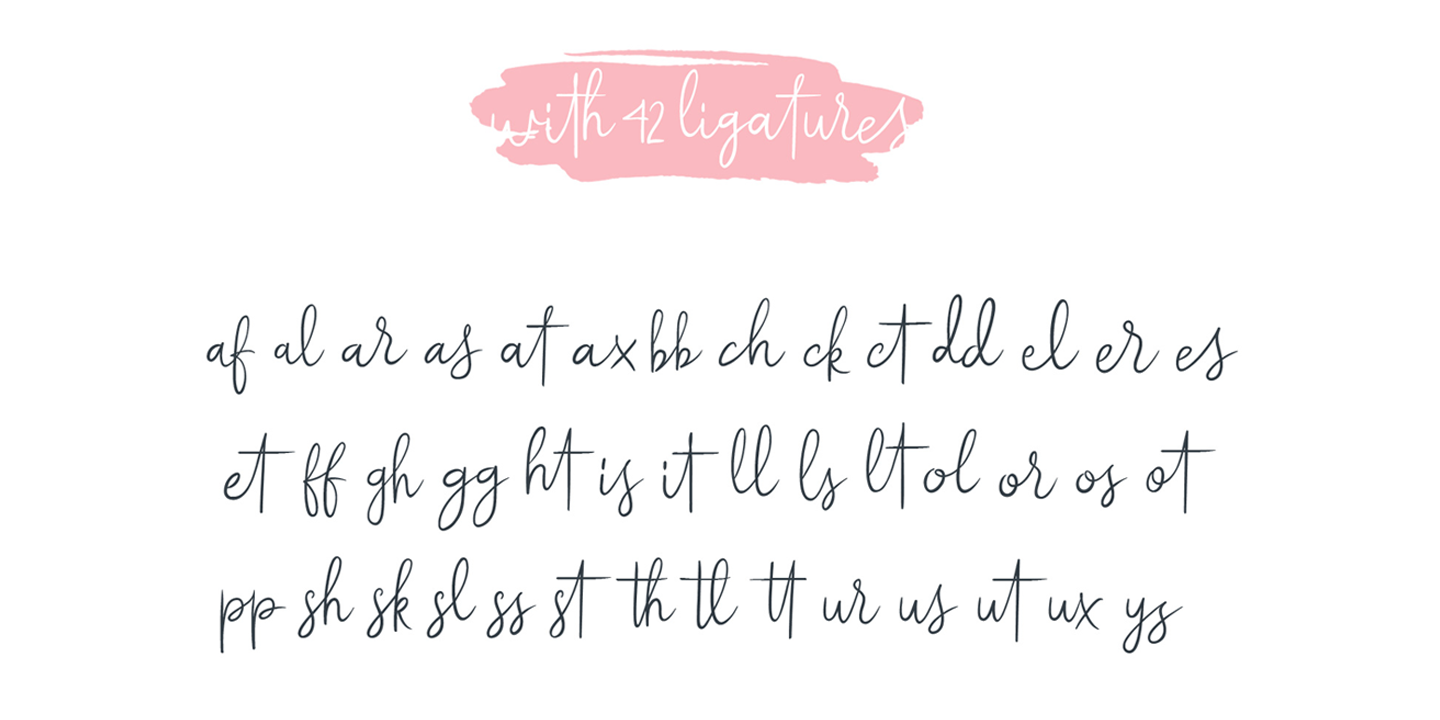 with 42 ligatures
af al ar as at ax bb ch ck ct dd el er es
et ff gh gg ht is it ll ls lt ol or os ot
pp sh sk sl ss st th tl tt ur us ut ux ys